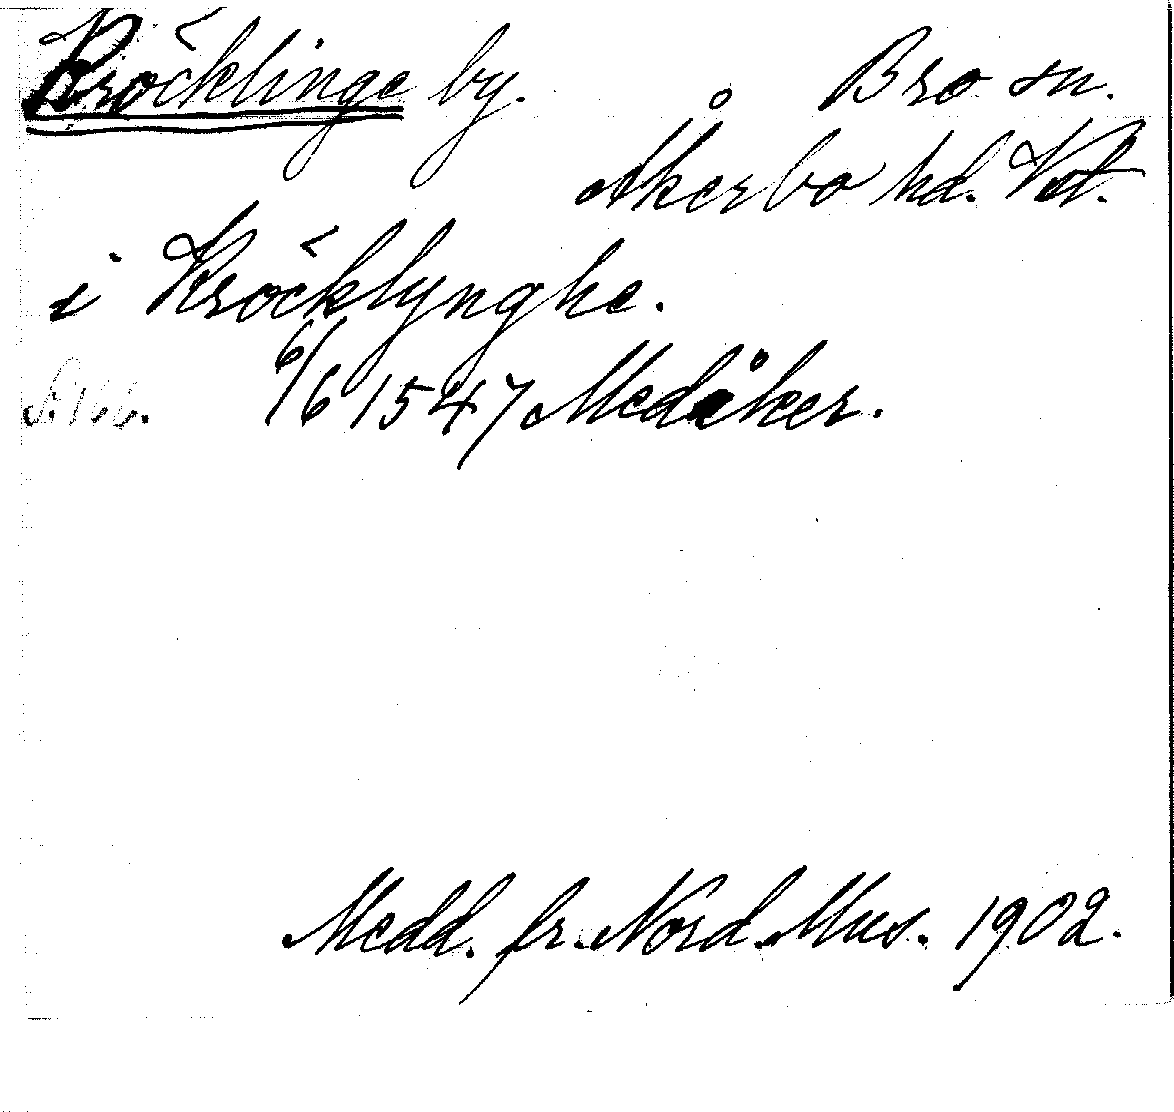 Kröcklinge by. Bro sn.
Åkerbo hd. Vstm.
i Kröcklynghe.
S. 166. 6/6 1547 Medåker.
Medd. fr. Nord. Mus. 1902.